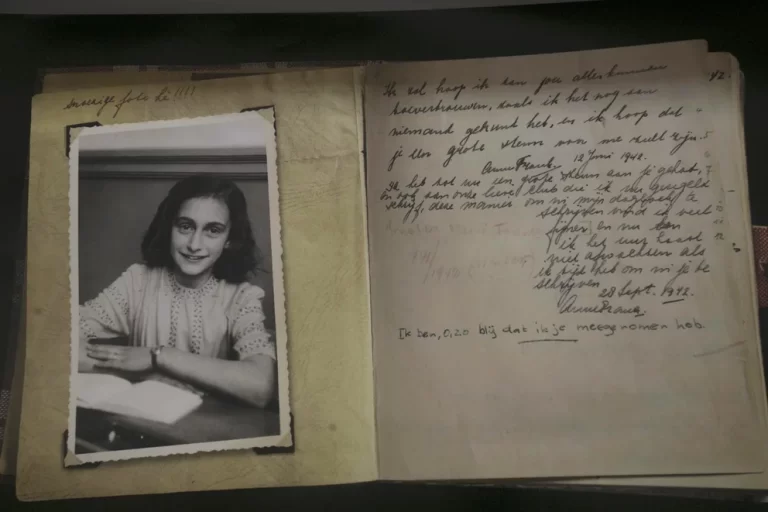 snoezige foto hè!!!!
Ik zal hoop ik aan jou alles kunnen
toevertrouwen, zoals ik het nog aan
niemand gekunt heb, en ik hoop dat
je een grote steun van me zult zijn.
Anne Frank. 12 Juni 1942.
Ik heb tot nu een grote steun aan je gehad,
en ook aan onze lieve club die ik nu geregeld
schrijf, deze manier om in mijn dagboek te
schrijven vind ik veel
fijner en nu kan
ik het uur haast
niet afwachten als
ik tijd heb om in je te
schrijven
28 Sept. 1942.
Anne Frank.
Ik ben, O, zo blij dat ik je meegenomen heb.
42.